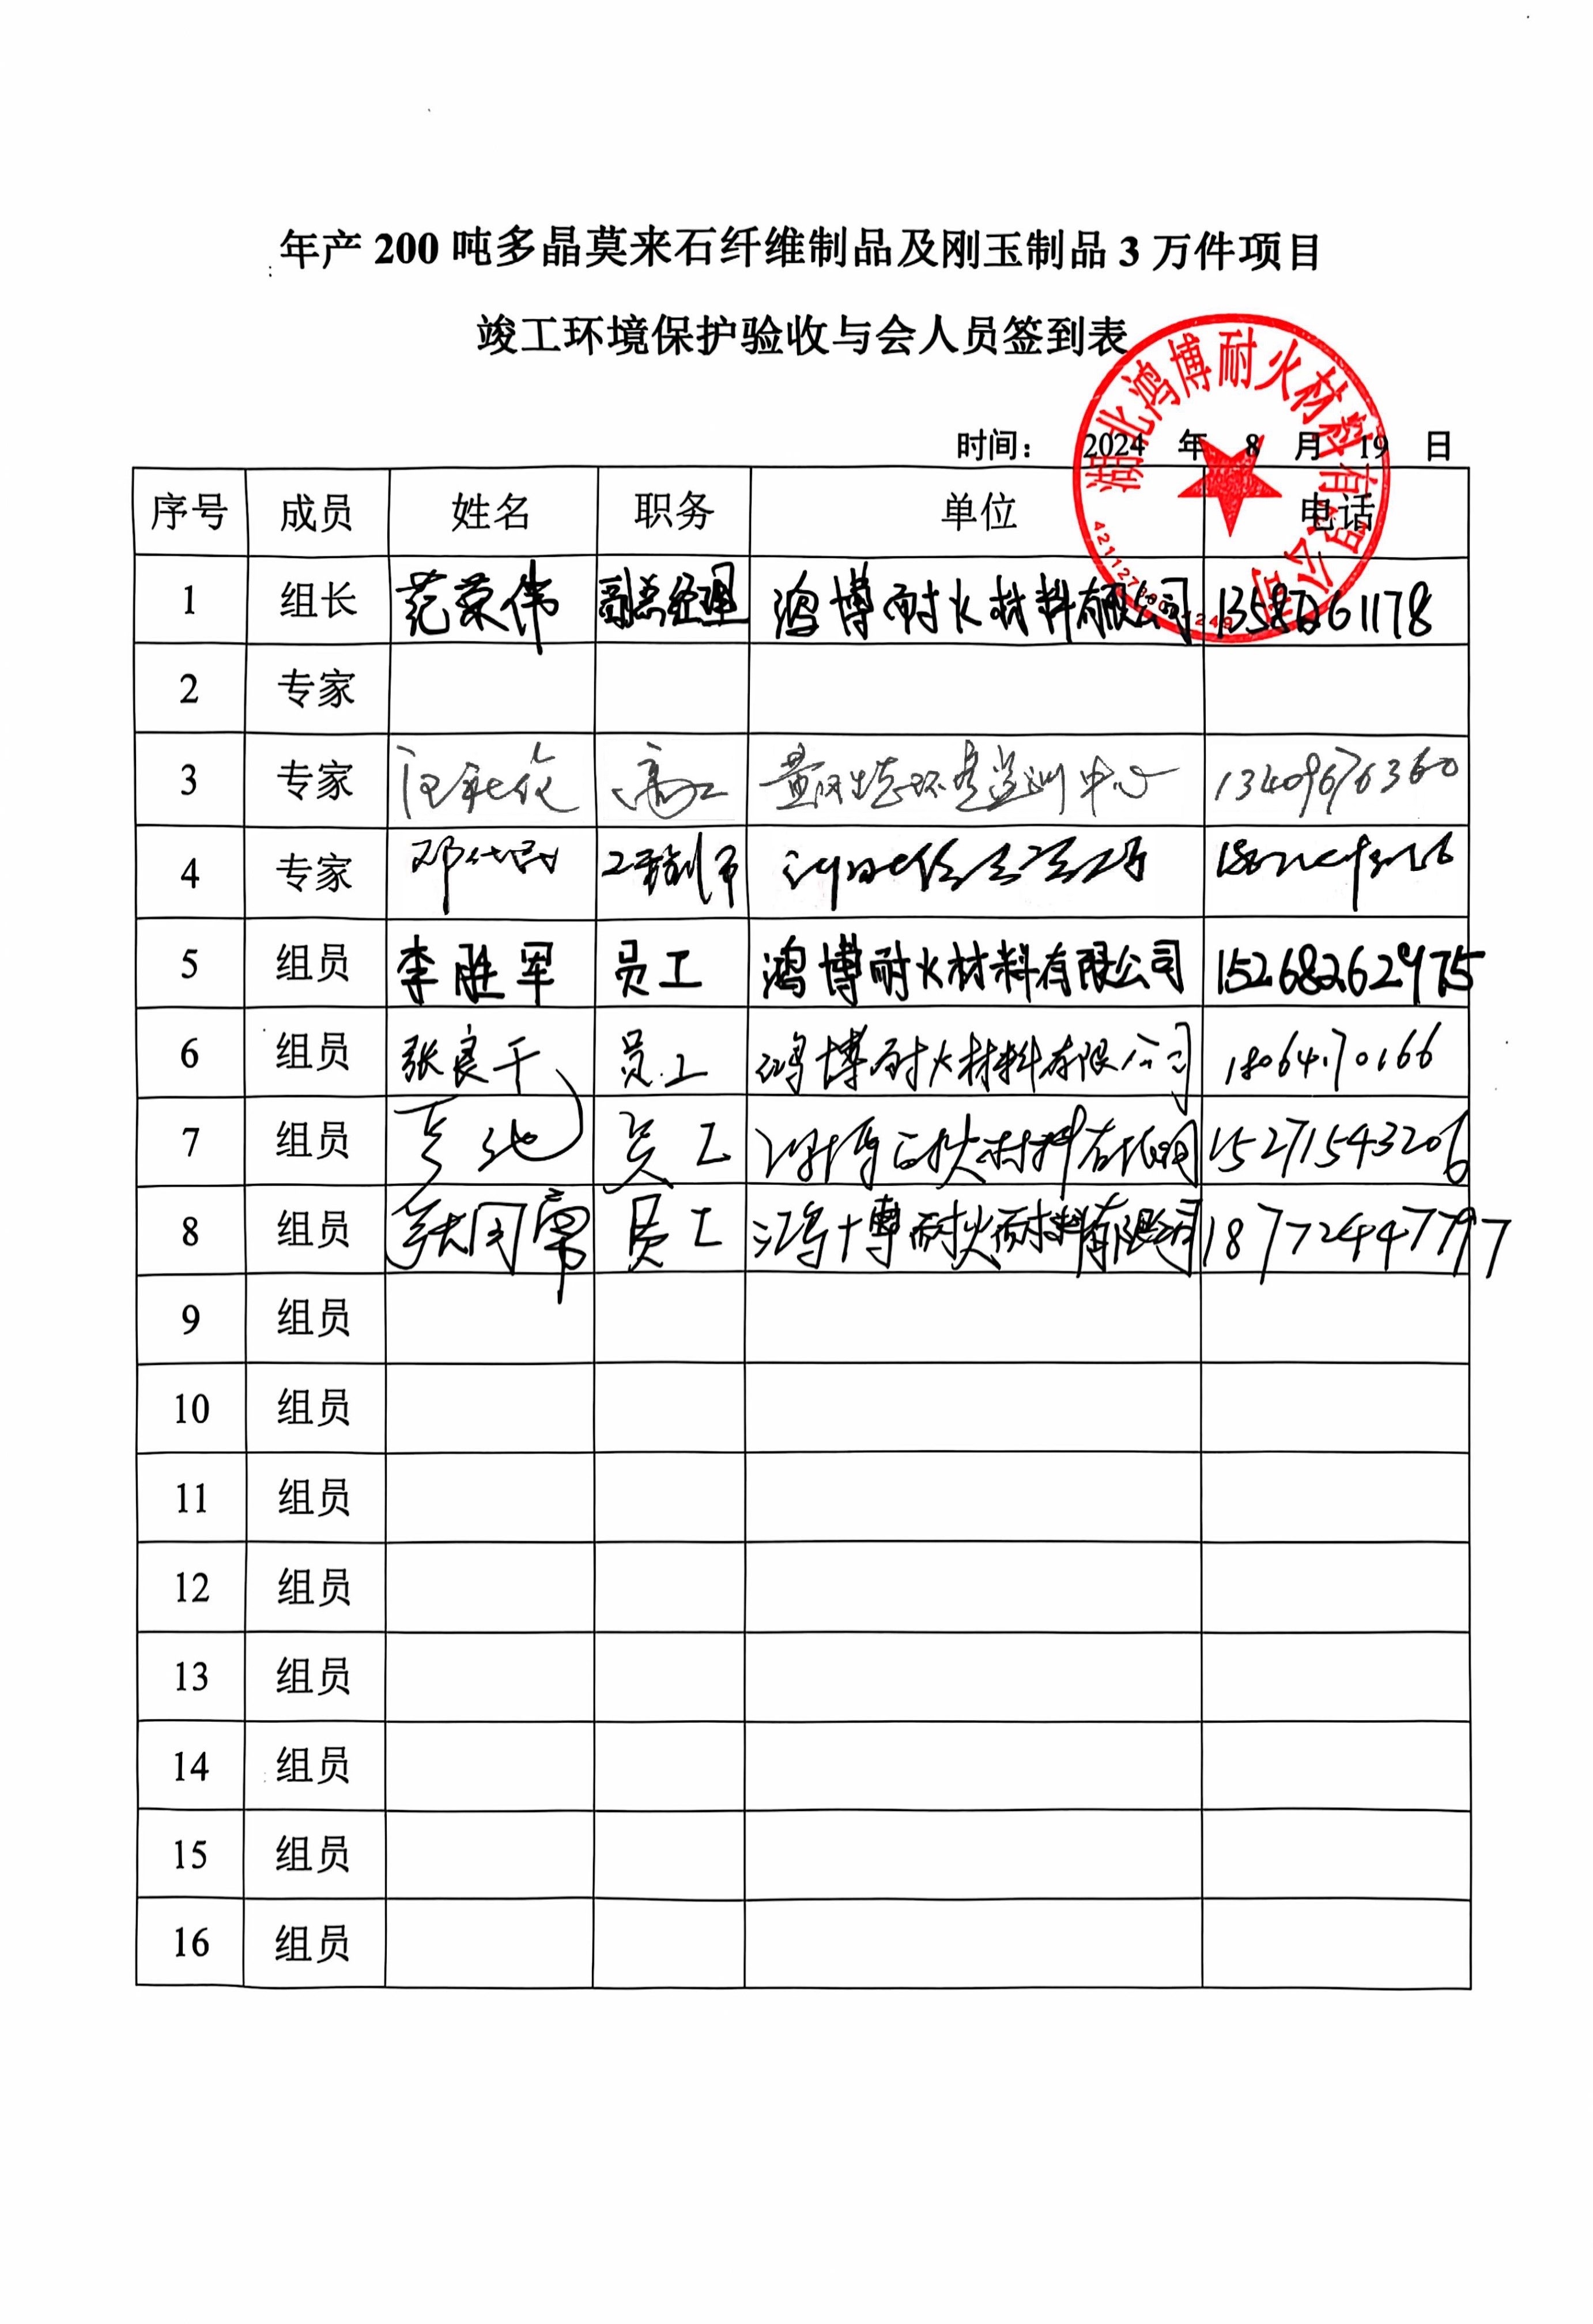 年产 200 吨多晶莫来石纤维制品及刚玉制品 3 万件项目
竣工环境保护验收与会人员签到表
湖北鸿博耐火材料有限公司
时间： 2024 年 8 月 19 日
序号 成员 姓名 职务 单位 电话
1 组长 范荣伟 副总经理 鸿博耐火材料有限公司
2 专家
3 专家 高工 中心 13409676360
4 专家 邓 工程师
5 组员 李胜军 员工 鸿博耐火材料有限公司 15268262975
6 组员 张良千 员工 鸿博耐火材料有限公司
7 组员 员工 15271543206
8 组员 员工 鸿博耐火耐材料有限公司 18772447797
9 组员
10 组员
11 组员
12 组员
13 组员
14 组员
15 组员
16 组员